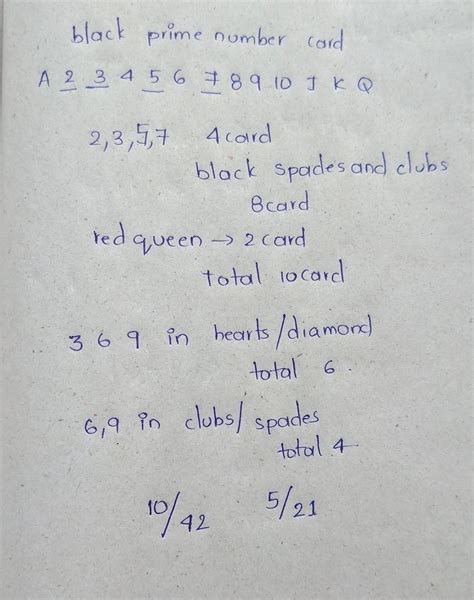 black prime number card
A 2 3 4 5 6 7 8 9 10 J K Q
2,3,5,7 4 card
black spades and clubs
8 card
red queen → 2 card
total 10 card
3 6 9 in hearts/diamond
total 6.
6,9 in clubs/ spades
total 4
10/42 5/21